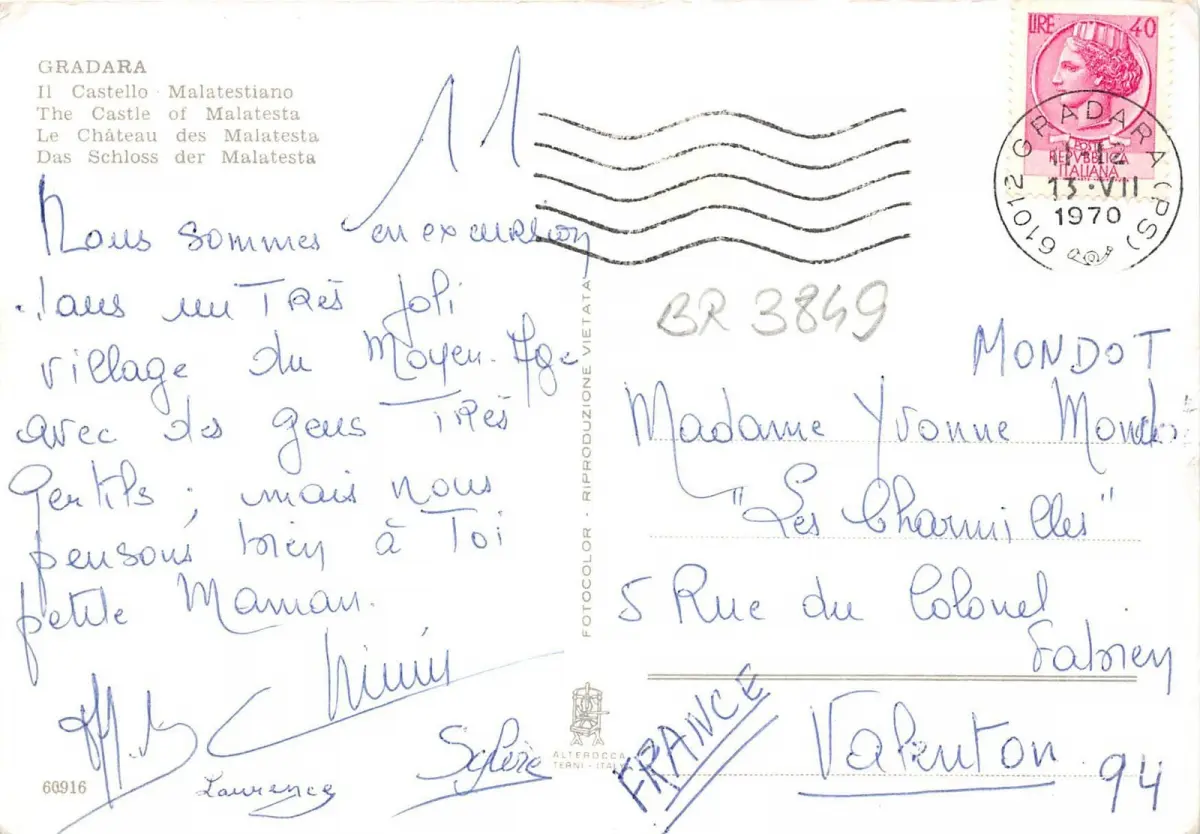 GRADARA
Il Castello Malatestiano
The Castle of Malatesta
Le Château des Malatesta
Das Schloss der Malatesta
11
Nous sommes en excursion
dans un TRès Joli
village du Moyen-Age
avec des gens TRès
Gentils ; mais nous
pensons bien à Toi
petite Maman.
Laurence
60916
FOTOCOLOR - RIPRODUZIONE VIETATA
ALTEROCCA
TERNI - ITALY
LIRE 40
POSTE
REPVBBLICA
ITALIANA
61012 GRADARA (PS)
13·VII
1970
BR 3849
MONDOT
Madame Yvonne Mondot
"Les Charmilles"
5 Rue du Colonel
Fabien
Valenton
94
FRANCE